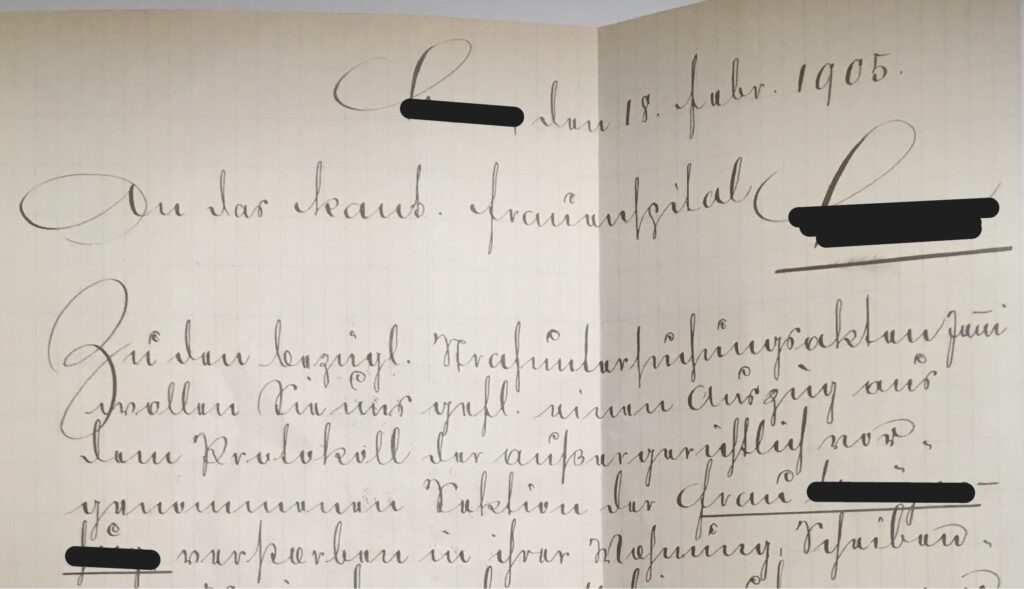 den 18. Febr. 1905.
An das kant. Frauenspital
Zu den bezügl. Strafuntersuchungsakten
wollen Sie uns gefl. einen Auszug aus
dem Protokoll der außergerichtlich vor-
genommenen Sektion der Frau
verstorben in ihrer Wohnung, Scheiben-